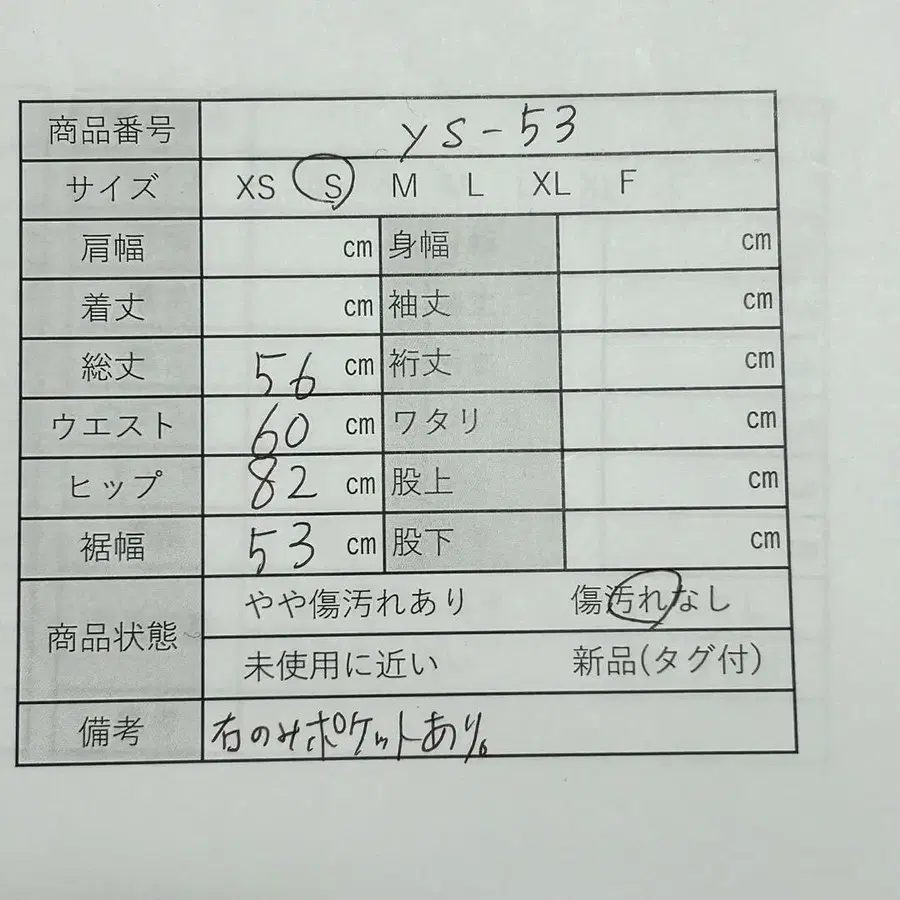 商品番号 ys-53
サイズ XS S M L XL F
肩幅 cm 身幅 cm
着丈 cm 袖丈 cm
総丈 56 cm 裄丈 cm
ウエスト 60 cm ワタリ cm
ヒップ 82 cm 股上 cm
裾幅 53 cm 股下 cm
商品状態 やや傷汚れあり 傷汚れなし
未使用に近い 新品(タグ付)
備考 右のみポケットあり。